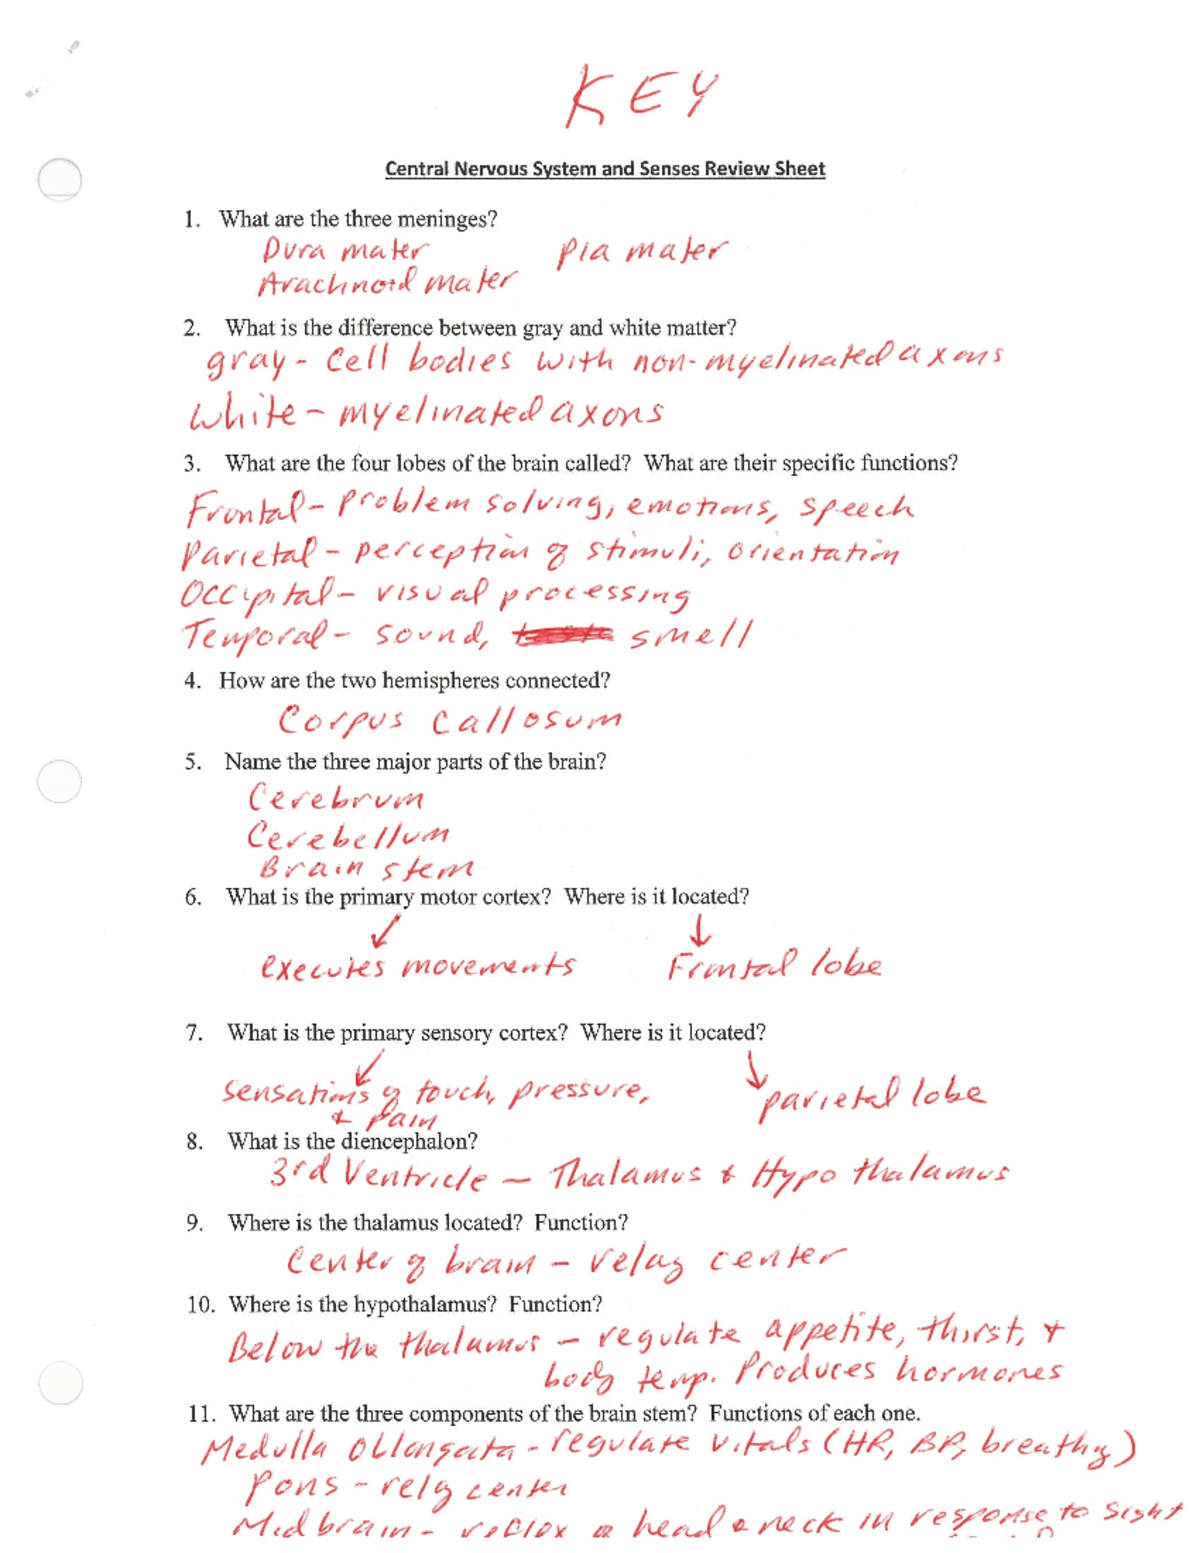 KEY
Central Nervous System and Senses Review Sheet
1. What are the three meninges?
Dura mater Pia mater
Arachnoid mater
2. What is the difference between gray and white matter?
gray - Cell bodies with non-myelinated axons
White - myelinated axons
3. What are the four lobes of the brain called? What are their specific functions?
Frontal - problem solving, emotions, speech
Parietal - perception of stimuli, orientation
Occipital - visual processing
Temporal - sound, smell
4. How are the two hemispheres connected?
Corpus callosum
5. Name the three major parts of the brain?
Cerebrum
Cerebellum
Brain stem
6. What is the primary motor cortex? Where is it located?
executes movements Frontal lobe
7. What is the primary sensory cortex? Where is it located?
sensations of touch, pressure, parietal lobe
& pain
8. What is the diencephalon?
3rd Ventricle - Thalamus & Hypothalamus
9. Where is the thalamus located? Function?
Center of brain - relay center
10. Where is the hypothalamus? Function?
Below the thalamus - regulate appetite, thirst, &
body temp. Produces hormones
11. What are the three components of the brain stem? Functions of each one.
Medulla Oblongata - regulate vitals (HR, BP, breathg)
Pons - rely center
Midbrain - reflex head & neck in response to sight